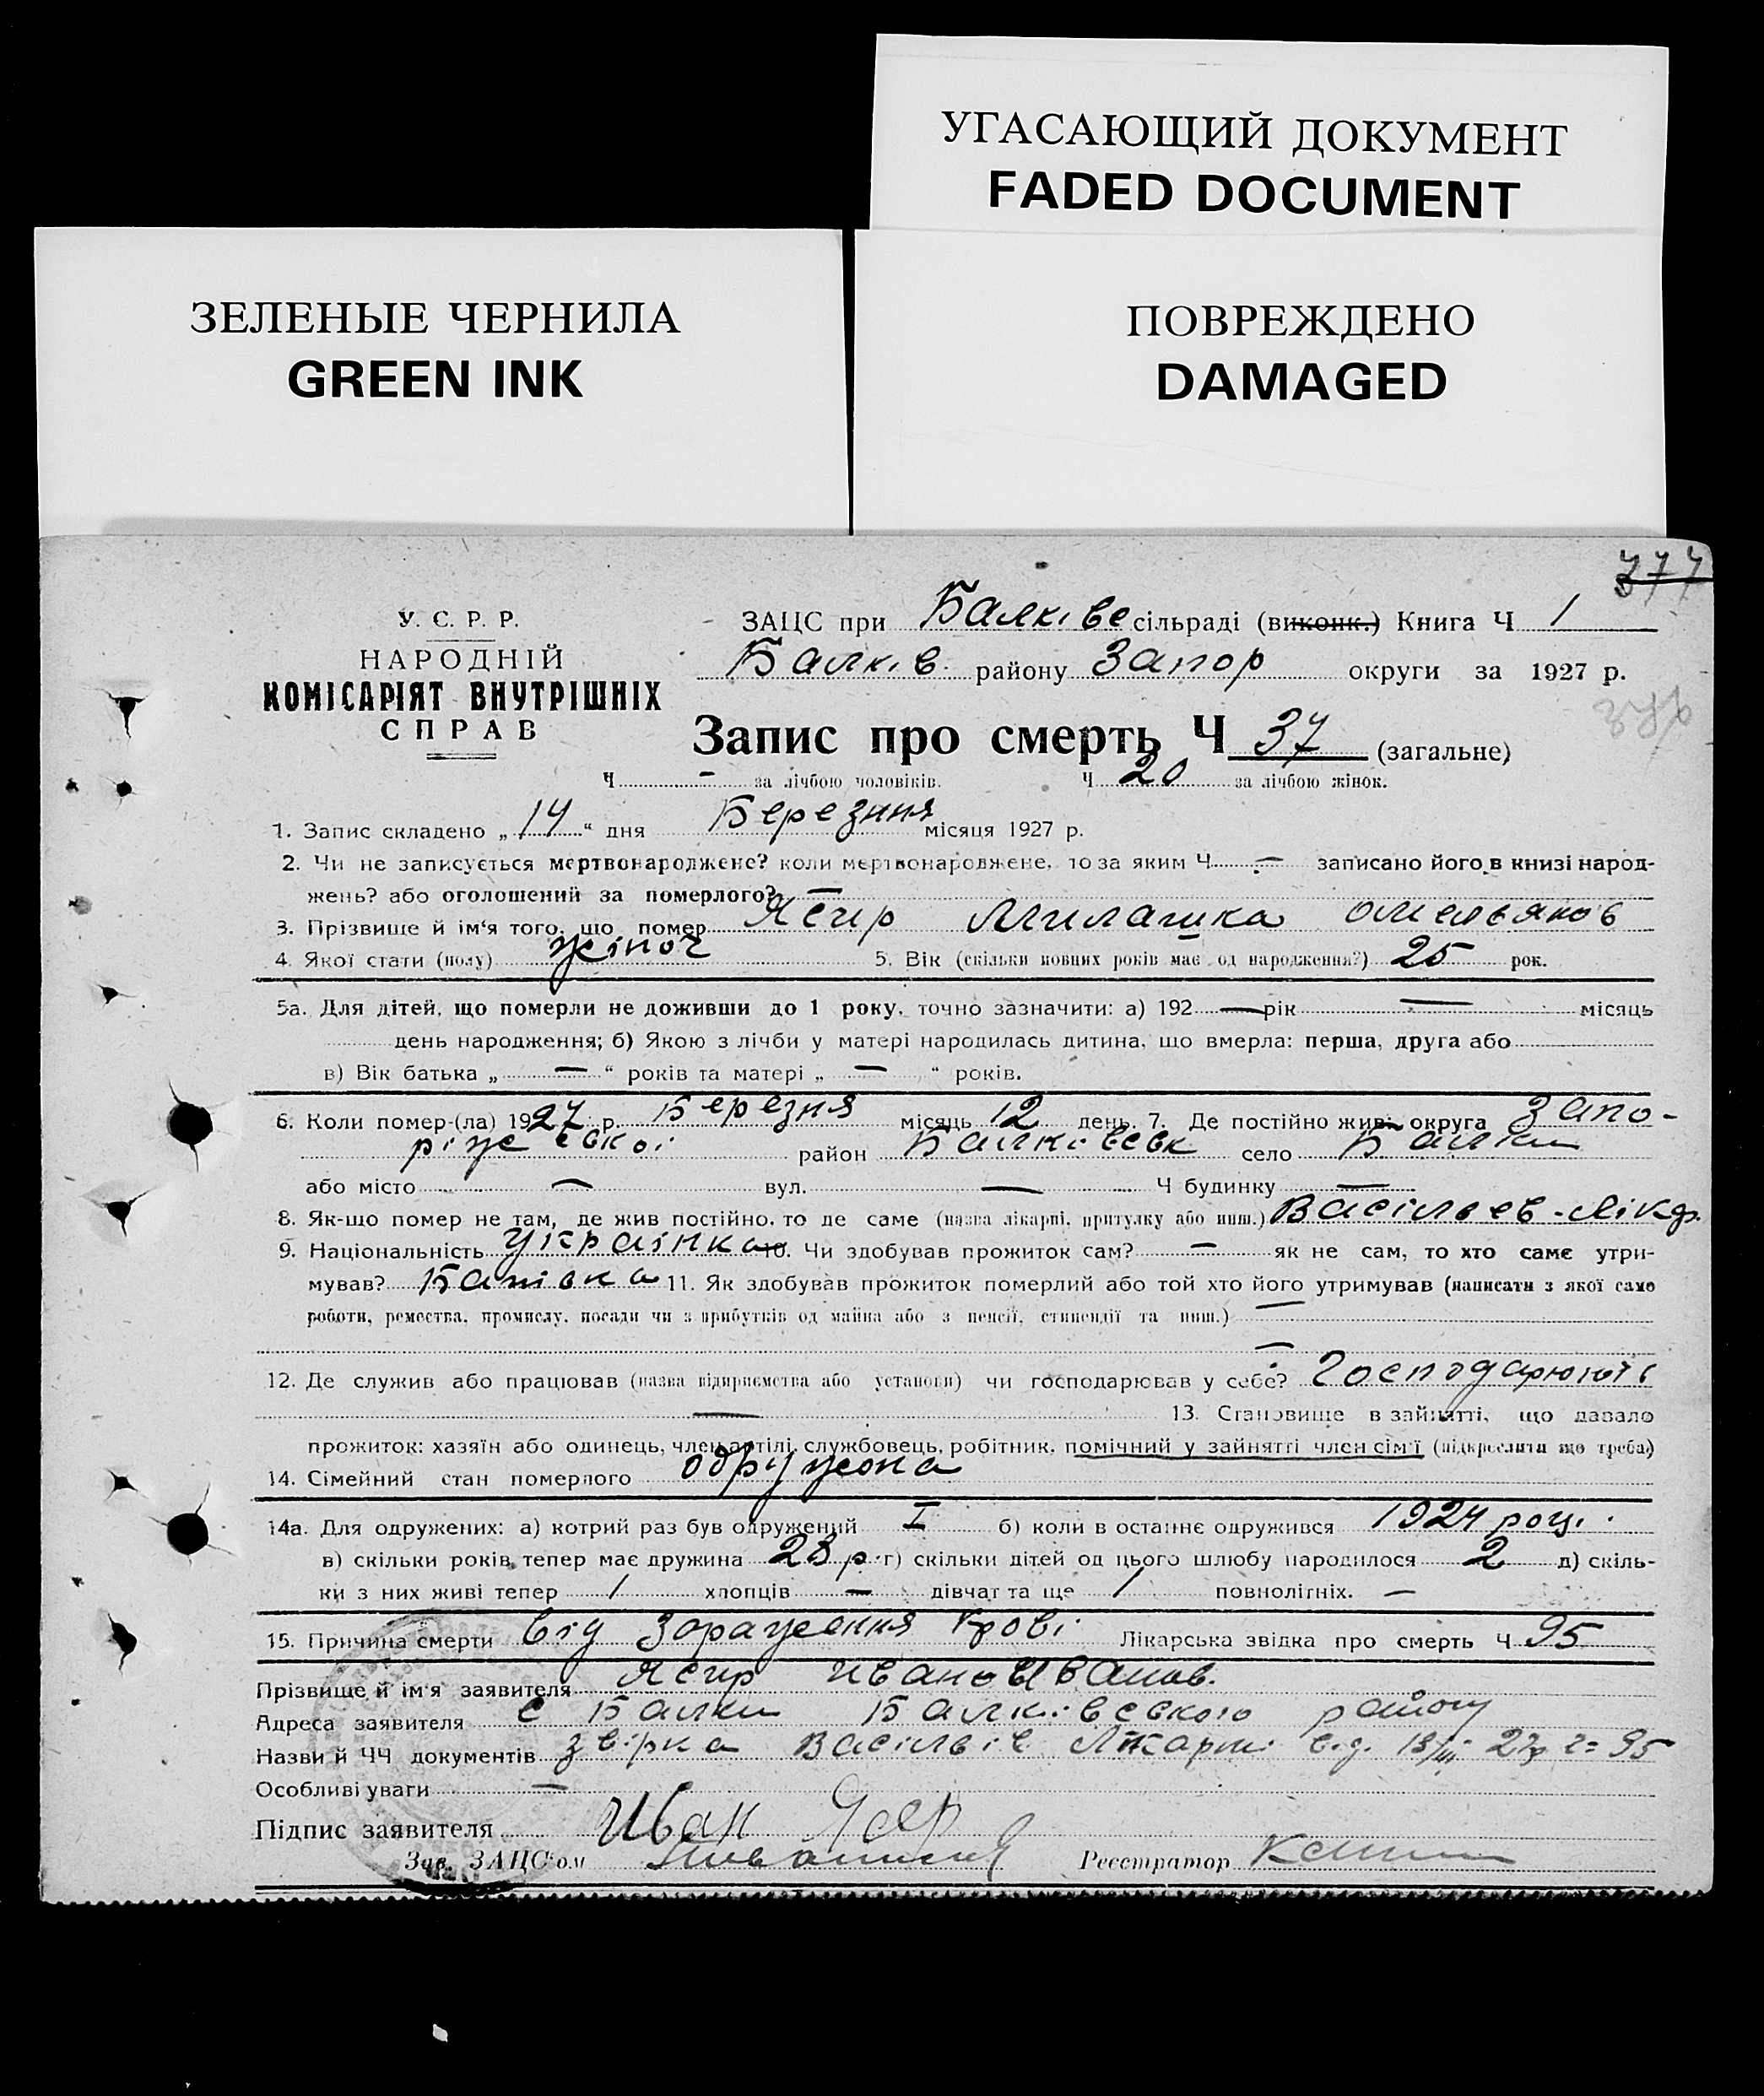 УГАСАЮЩИЙ ДОКУМЕНТ
FADED DOCUMENT
ЗЕЛЕНЫЕ ЧЕРНИЛА
GREEN INK
ПОВРЕЖДЕНО
DAMAGED
377
У. С. Р. Р.
НАРОДНІЙ
КОМІСАРІЯТ ВНУТРІШНІХ
СПРАВ
ЗАЦС при Балківс сільраді (виконк.) Книга Ч 1
Балків району Запор округи за 1927 р.
Запис про смерть Ч 37 (загальне)
Ч — за лічбою чоловіків. Ч 20 за лічбою жінок.
1. Запис складено „ 14 “ дня Березння місяця 1927 р.
2. Чи не записується мертвонароджене? коли мертвонароджене, то за яким Ч — записано його в книзі народ-
жень? або оголошений за померлого? —
3. Прізвище й ім'я того, що помер Ясир Милашка Омельянов
4. Якої стати (полу) жіноч 5. Вік (скільки повних років має од народження?) 25 рок.
5а. Для дітей, що померли не доживши до 1 року, точно зазначити: а) 192 — рік — місяць
день народження; б) Якою з лічби у матері народилась дитина, що вмерла: перша, друга або
в) Вік батька „ — “ років та матері „ — “ років.
6. Коли помер-(ла) 1927 р. Березня місяць 12 день. 7. Де постійно жив округа Запо-
ріжської район Балківськ село Балки
або місто — вул. — Ч будинку —
8. Як-що помер не там, де жив постійно, то де саме (назва лікарні, притулку або инш.) Васільев-Лікар.
9. Національність Українка 10. Чи здобував прожиток сам? — як не сам, то хто саме утри-
мував? 11. Як здобував прожиток померлий або той хто його утримував (написати з якої само
роботи, ремества, промислу, посади чи з прибутків од майна або з пенсії, стипендії та инш.) —
—
12. Де служив або працював (назва підприємства або установи) чи господарював у себе? Господарюють
— 13. Становище в зайнятті, що давало
прожиток: хазяїн або одинець, член артілі, службовець, робітник, помічний у зайнятті член сім'ї (підкреслити що треба)
14. Сімейний стан померлого одружона
14а. Для одружених: а) котрий раз був одружений I б) коли в останнє одружився 1924 році.
в) скільки років тепер має дружина 28 р. г) скільки дітей од цього шлюбу народилося 2 д) скіль-
ки з них живі тепер 1 хлопців — дівчат та ще 1 повнолітніх. —
15. Причина смерти від Зараження Крові Лікарська звідка про смерть Ч 95
Прізвище й ім'я заявителя Ясир Иван Иванов.
Адреса заявителя с Балки Балківського району
Назви й ЧЧ документів Васільів Лікарні від. 13/III 27р ч= 95
Особливі уваги —
Підпис заявителя Иван Ясер
Зав. ЗАЦС'ом Реєстратор